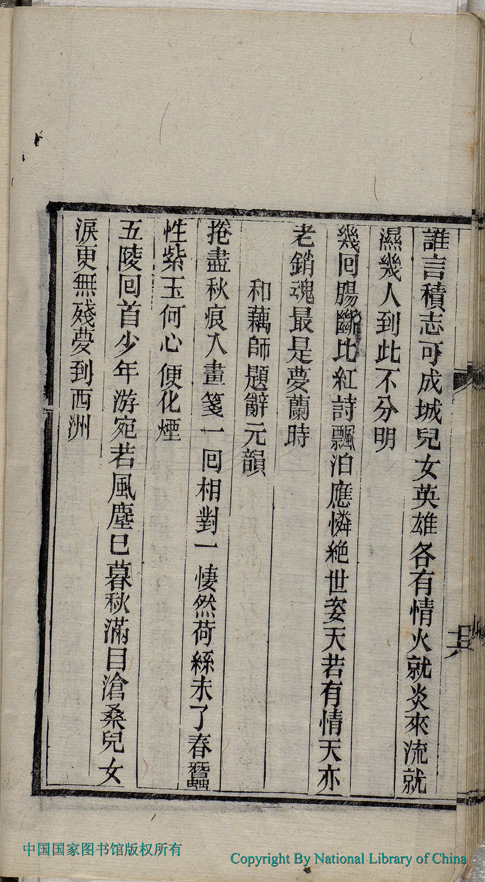 誰言積志可成城兒女英雄各有情火就炎來流就
濕幾人到此不分明
幾回腸斷比紅詩飄泊應憐絕世姿天若有情天亦
老銷魂最是夢蘭時
和藕師題辭元韻
捲盡秋痕入畫箋一回相對一悽然荷絲未了春蠶
性紫玉何心便化煙
五陵回首少年游宛若風塵已暮秋滿目滄桑兒女
淚更無殘夢到西洲
中国国家图书馆版权所有
Copyright By National Library of China